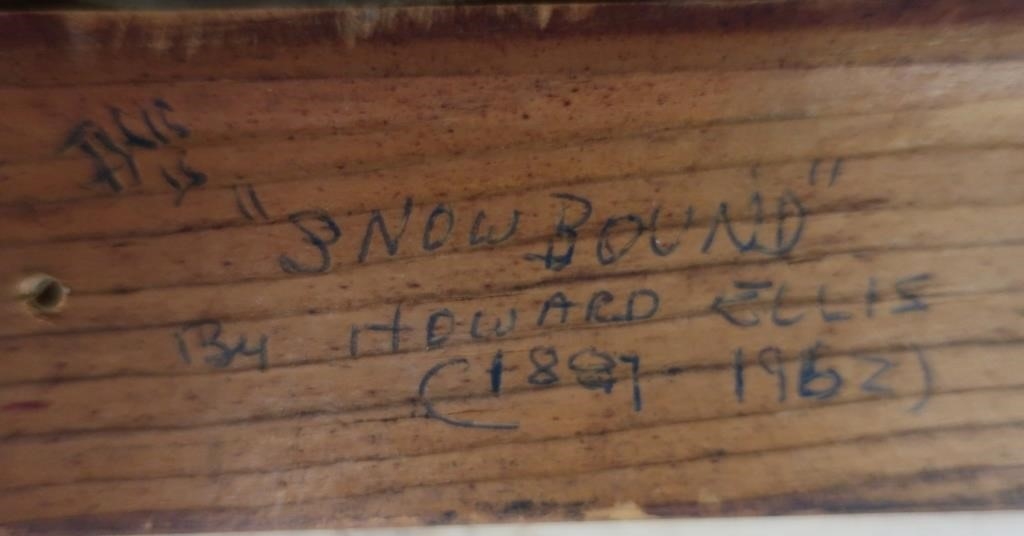 "SNOW BOUND"
By HOWARD ELLIS
(1887-1962)